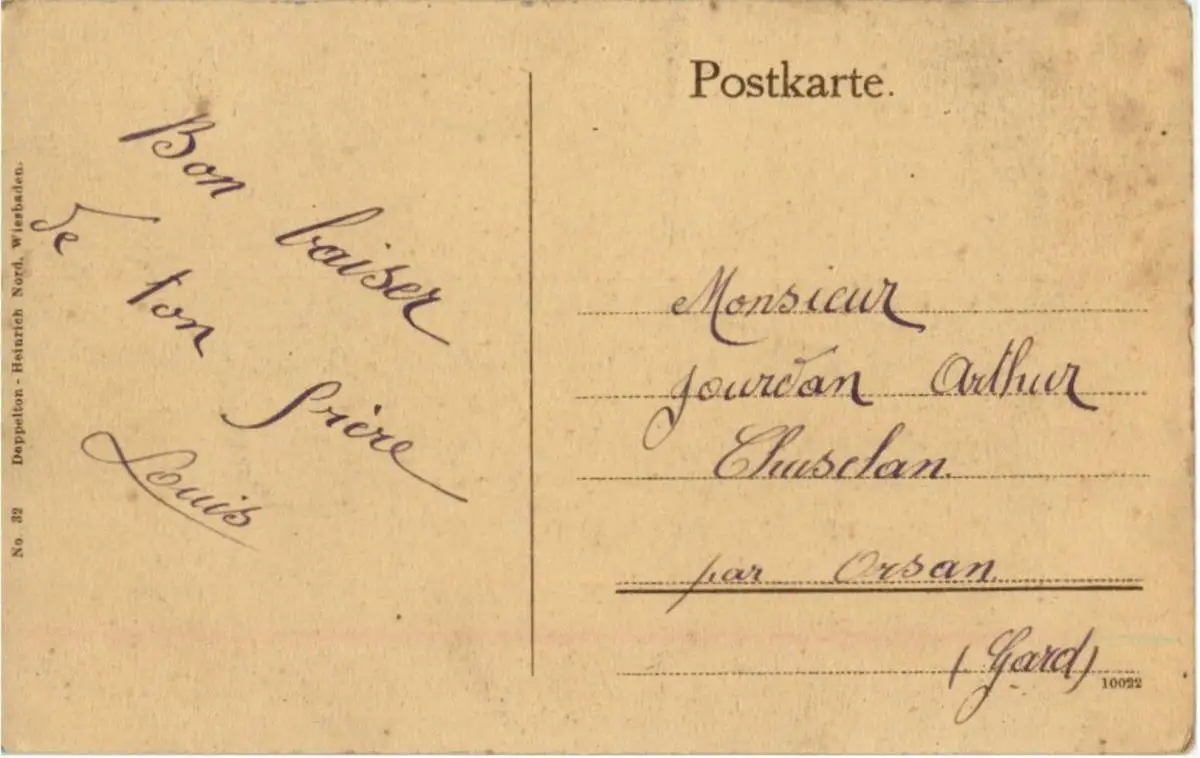 Postkarte.
Bon baiser
de ton frère
Louis
Monsieur
Jourdan Arthur
Chusclan.
par Orsan
(Gard)
10022
No. 32 Doppelton-Heinrich Nord, Wiesbaden.